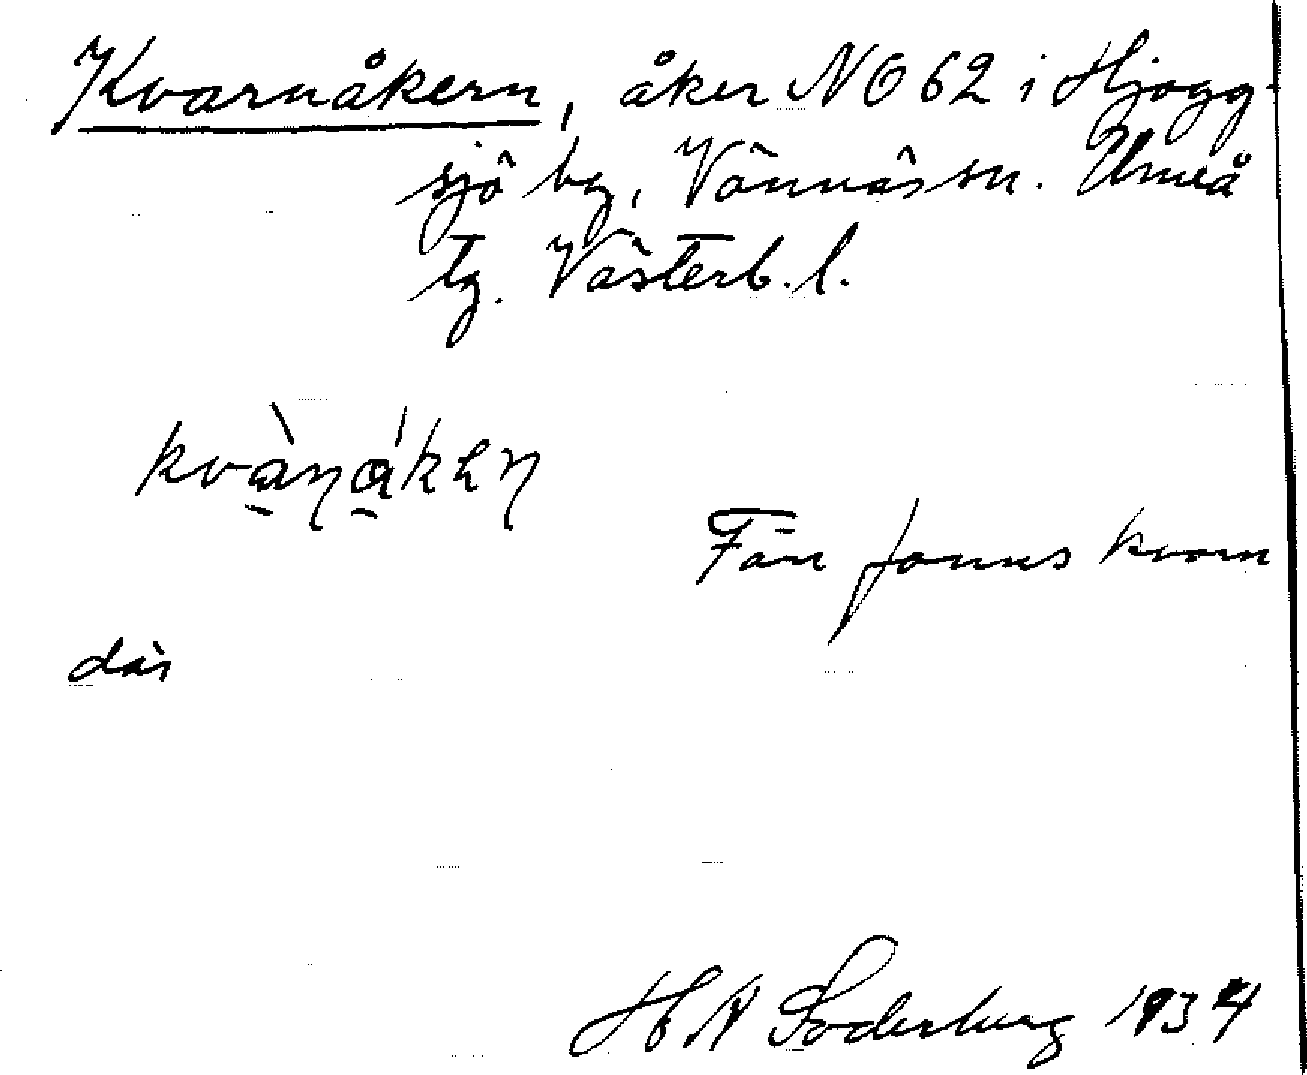 Kvarnåkern, åker NO 62 i Hjogg-
sjö by, Vännäs sn. Umeå
tg. Västerb. l.
kvàṇákeṇ
Fanns kvarn
där
H A Söderberg 1934